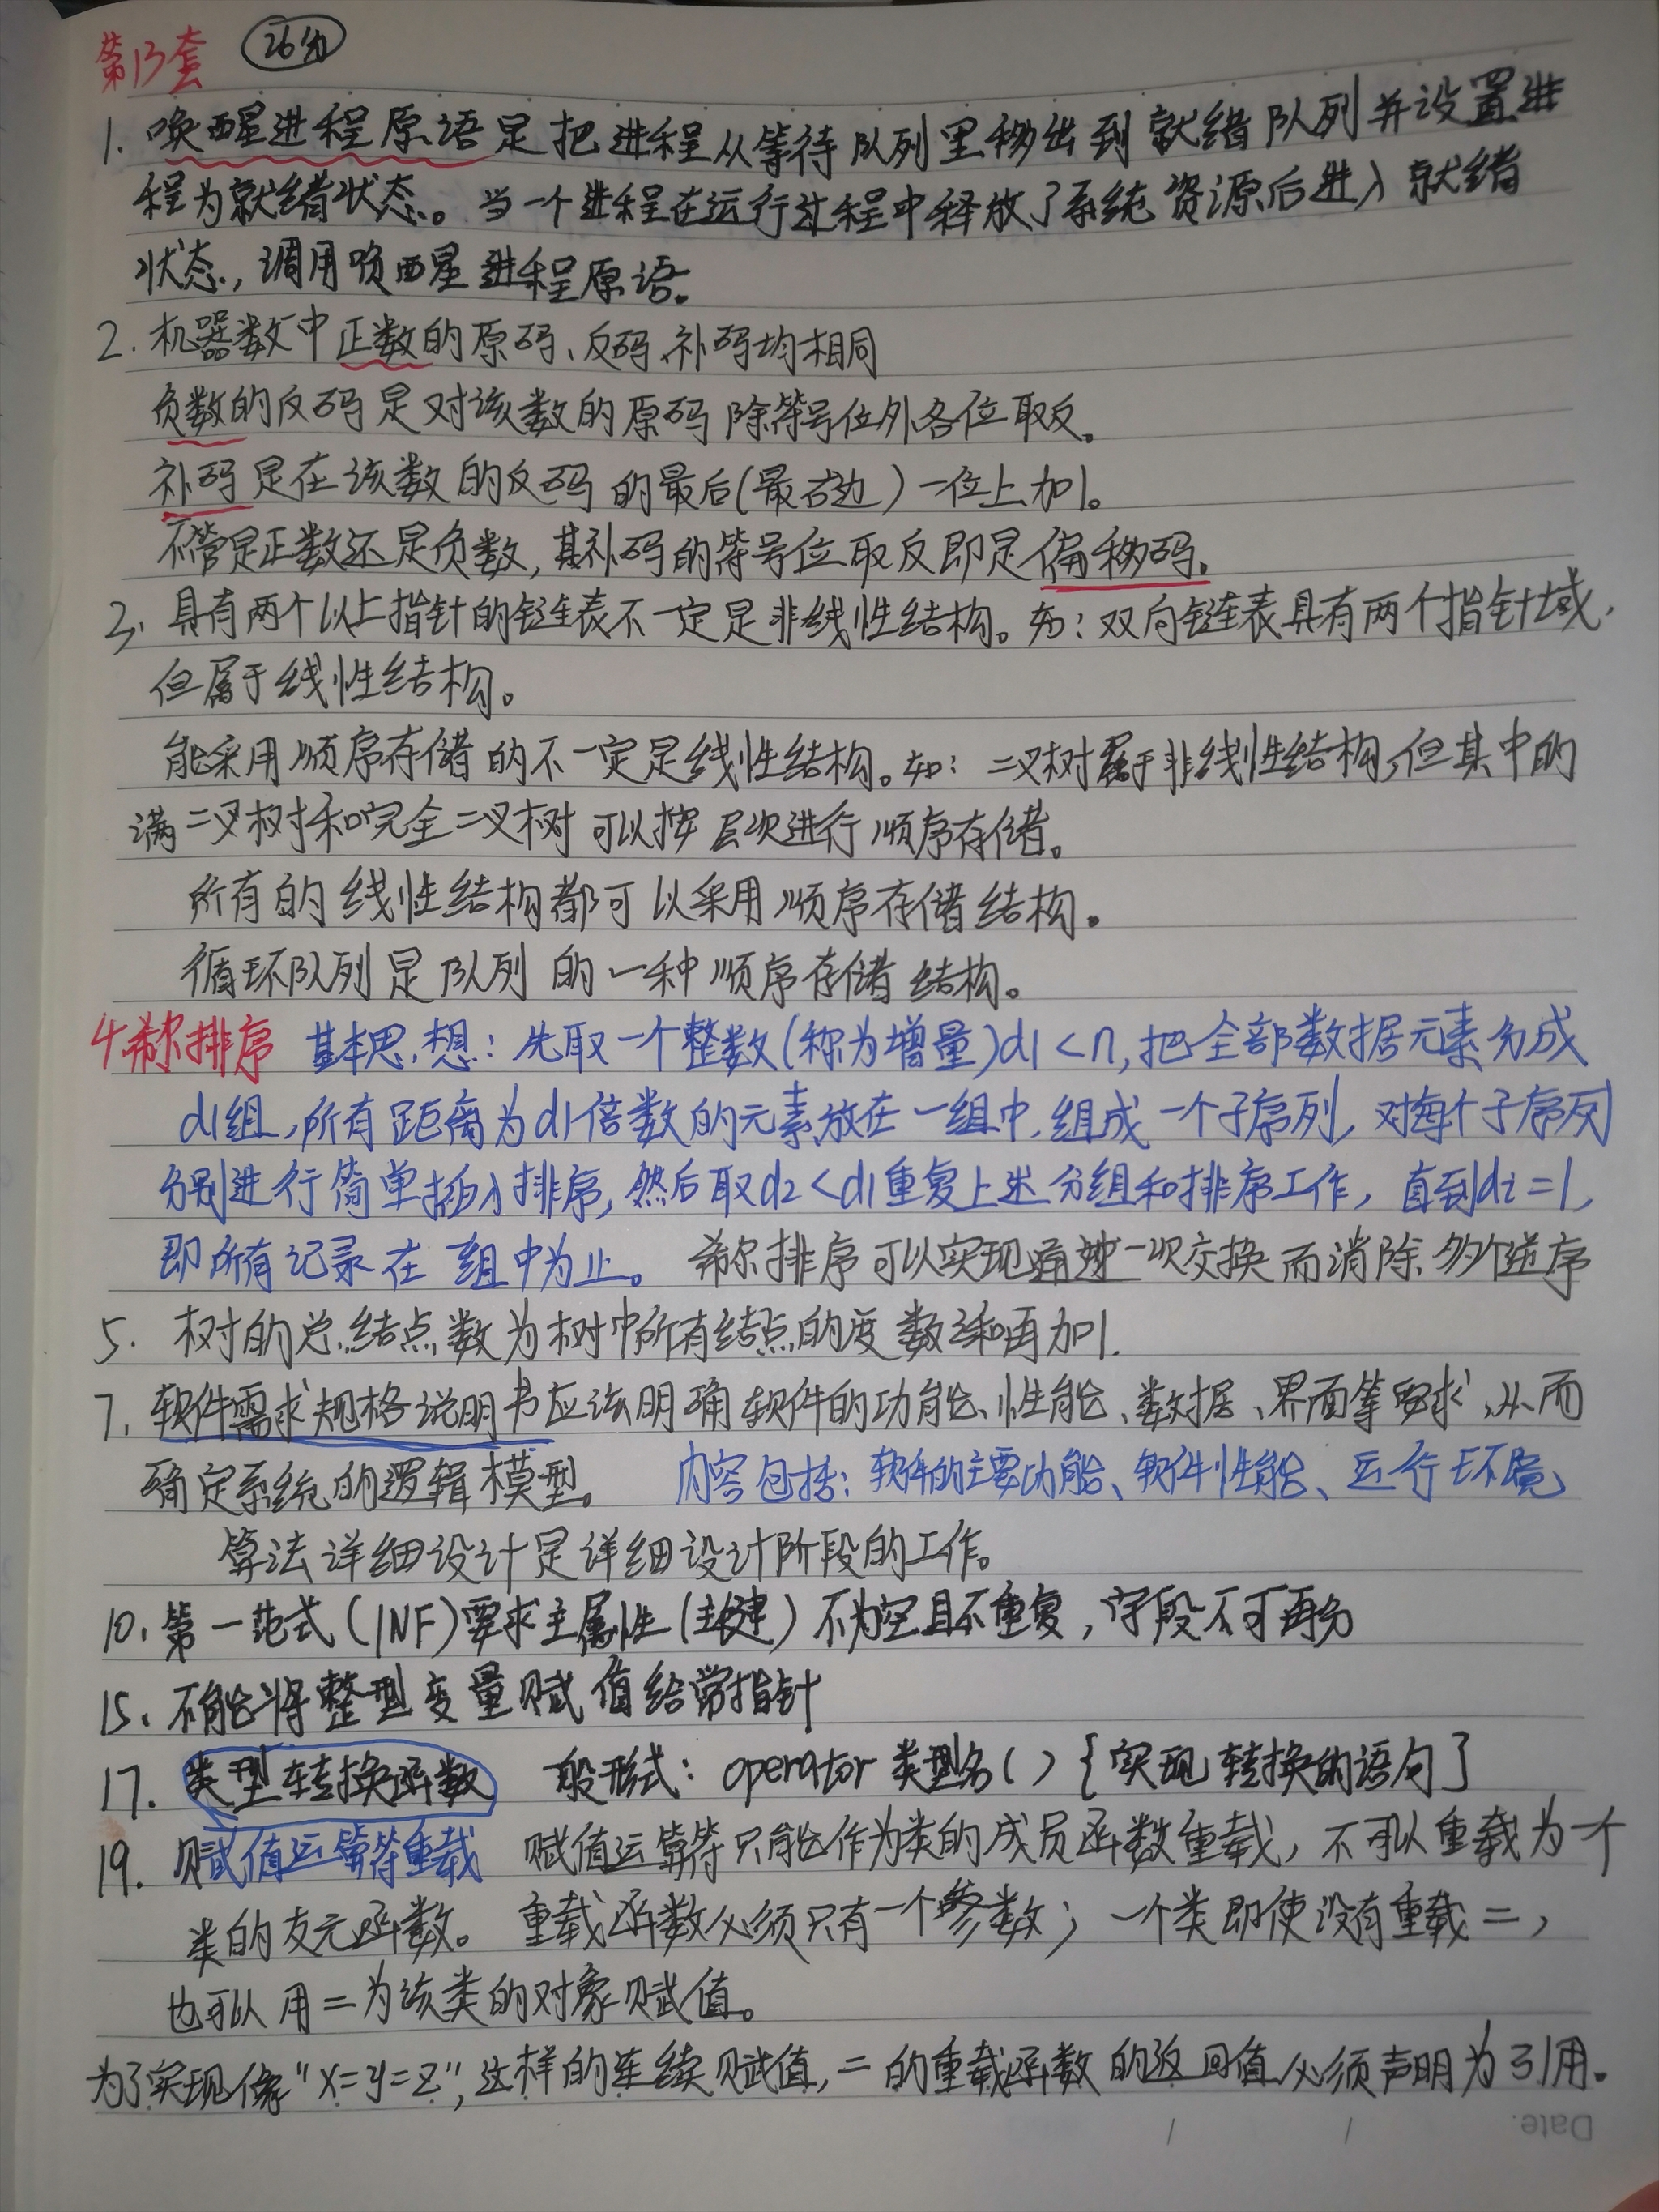 第13套 26分
1. 唤醒进程原语是把进程从等待队列里移出到就绪队列并设置进
程为就绪状态。当一个进程在运行过程中释放了系统资源后进入就绪
状态,调用唤醒进程原语。
2. 机器数中正数的原码、反码、补码均相同
负数的反码是对该数的原码除符号位外各位取反。
补码是在该数的反码的最后(最右边)一位上加1。
不管是正数还是负数,其补码的符号位取反即是偏移码。
3. 具有两个以上指针的链表不一定是非线性结构。如:双向链表具有两个指针域,
但属于线性结构。
能采用顺序存储的不一定是线性结构。如:二叉树属于非线性结构,但其中的
满二叉树和完全二叉树可以按层次进行顺序存储。
所有的线性结构都可以采用顺序存储结构。
循环队列是队列的一种顺序存储结构。
4 希尔排序 基本思想:先取一个整数(称为增量)d1<n,把全部数据元素分成
d1组,所有距离为d1倍数的元素放在一组中,组成一个子序列,对每个子序列
分别进行简单插入排序,然后取d2<d1重复上述分组和排序工作,直到di=1,
即所有记录在一组中为止。 希尔排序可以实现通过一次交换而消除多个逆序
5. 树的总结点数为树中所有结点的度数之和再加1.
7. 软件需求规格说明书应该明确软件的功能、性能、数据、界面等要求,从而
确定系统的逻辑模型。 内容包括:软件的主要功能、软件性能、运行环境
算法详细设计是详细设计阶段的工作。
10. 第一范式(1NF)要求主属性(主键)不为空且不重复,字段不可再分
15. 不能将整型变量赋值给常指针
17. 类型转换函数 一般形式:operator 类型名(){实现转换的语句}
19. 赋值运算符重载 赋值运算符只能作为类的成员函数重载,不可以重载为一个
类的友元函数。重载函数必须只有一个参数;一个类即使没有重载=,
也可以用=为该类的对象赋值。
为了实现像"x=y=z",这样的连续赋值,=的重载函数的返回值必须声明为引用。
Date. / /